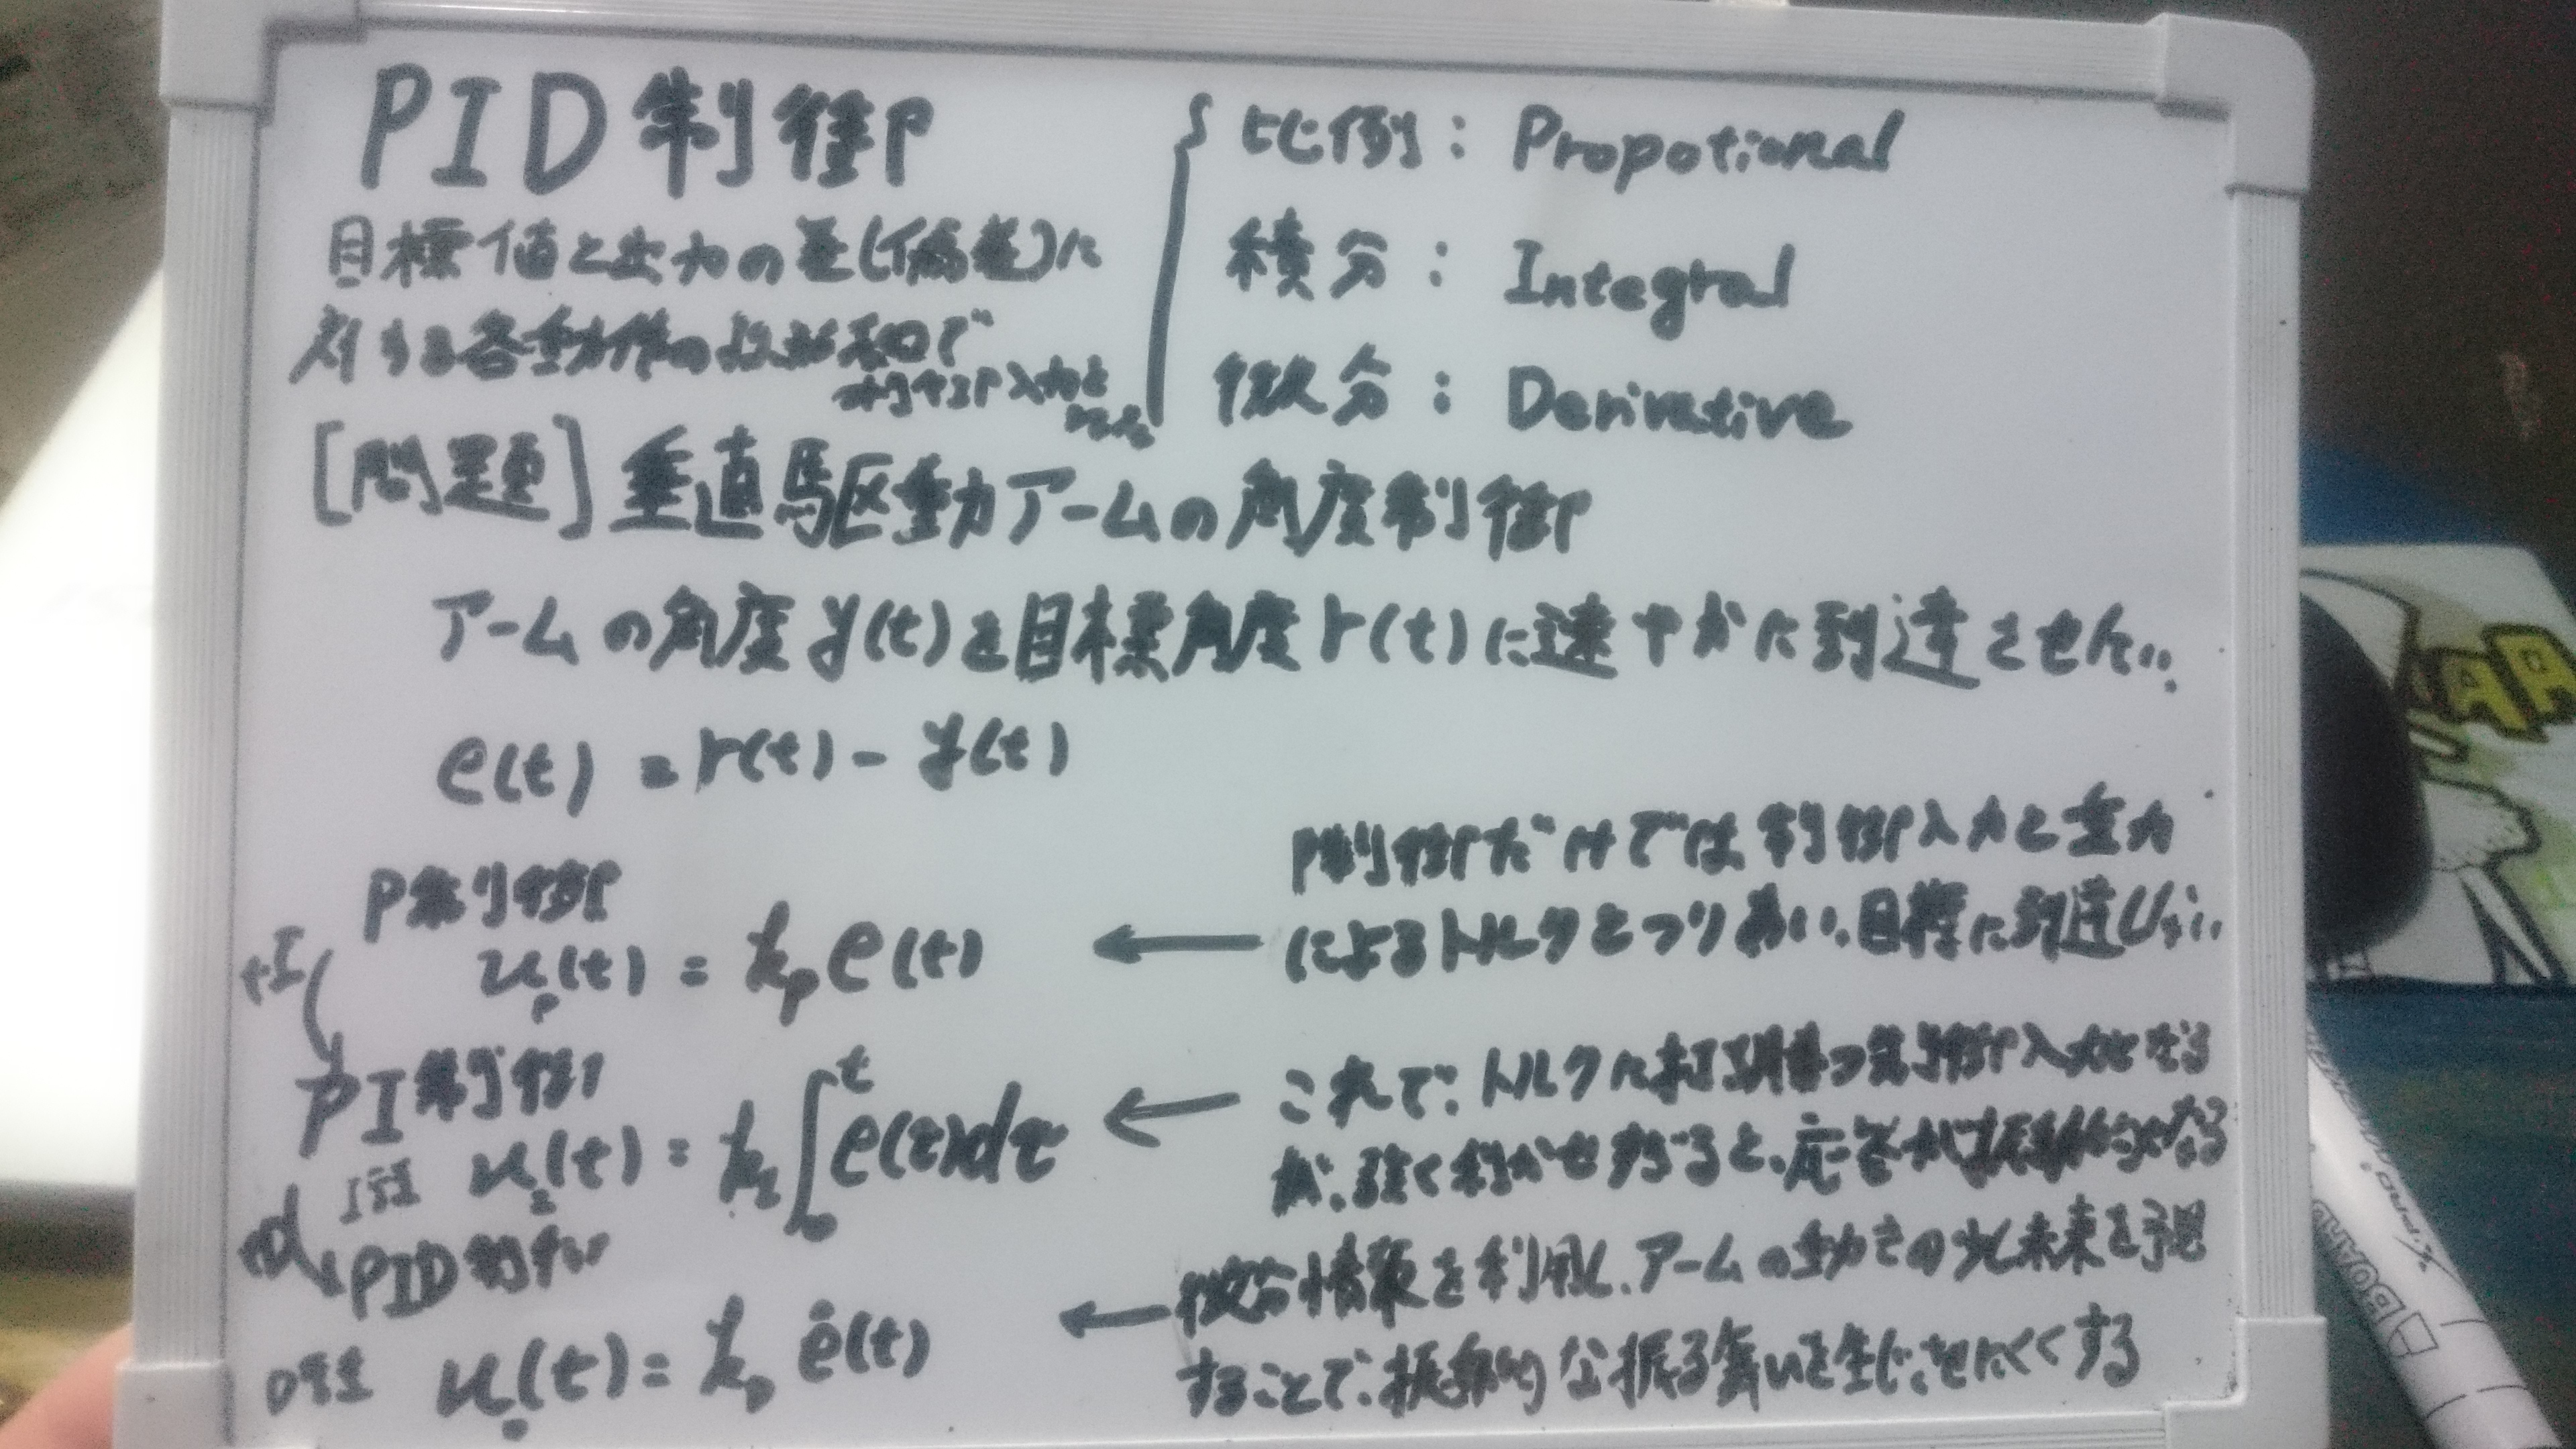 PID制御
目標値と出力の差(偏差)に
対する各動作の線形和で
制御入力を
{ 比例 : Propotional
積分 : Integral
微分 : Derivative
[問題] 垂直駆動アームの角度制御
アームの角度y(t)を目標角度r(t)に速やかに到達させたい.
e(t) = r(t) - y(t)
P制御
u_P(t) = k_P e(t)
← P制御だけでは制御入力と重力
によるトルクとつり合い、目標に到達しない.
+I
PI制御
I項 u_I(t) = k_I ∫_0^t e(τ)dτ
← これで、トルクに打ち勝つ制御入力となる
が、強く利かせすぎると、応答が振動的になる
+d
PID制御
D項 u_D(t) = k_D ė(t)
← 微分情報を利用し、アームの動きの少し未来を予想
することで、振動的な振る舞いを生じさせにくくする
AR
BOARD